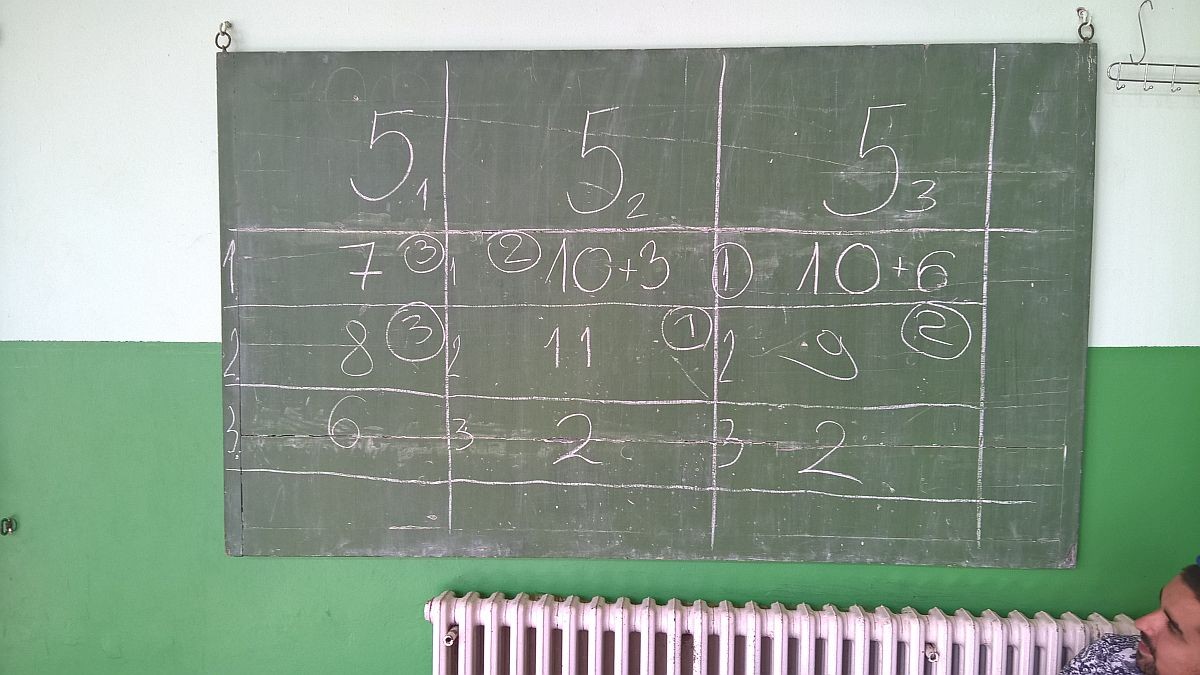 5₁ 5₂ 5₃
1 7 ③ 1 ② 10+3 ① 10+6
2 8 ③ 2 11 ① 2 9 ②
3 6 3 2 3 2